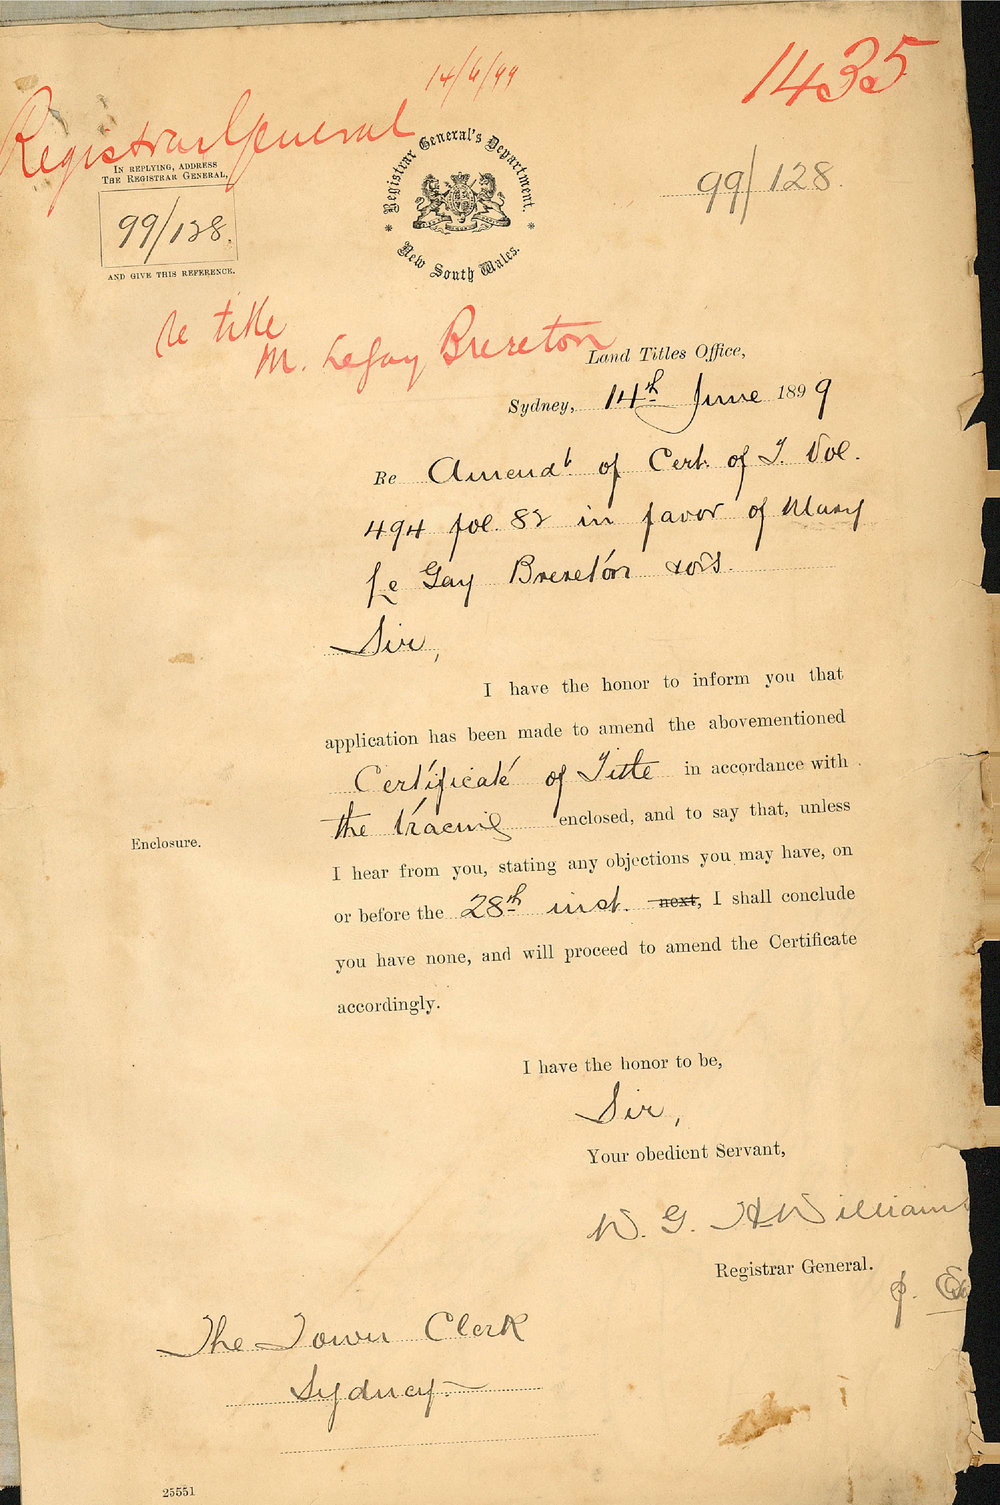 14/6/99
1435
Registrar General
IN REPLYING, ADDRESS
THE REGISTRAR GENERAL,
99/128.
AND GIVE THIS REFERENCE.
Registrar General's Department.
New South Wales.
99/128.
re title
M. LeGay Brereton
Land Titles Office,
Sydney, 14th June 1899
Re Amendt. of Cert. of T. Vol.
494 fol. 82 in favor of Mary
Le Gay Brereton & ors.
Sir,
I have the honor to inform you that
application has been made to amend the abovementioned
Certificate of Title in accordance with
the tracing enclosed, and to say that, unless
Enclosure.
I hear from you, stating any objections you may have, on
or before the 28th inst. next, I shall conclude
you have none, and will proceed to amend the Certificate
accordingly.
I have the honor to be,
Sir,
Your obedient Servant,
W. G. H. Williams
Registrar General.
p.
The Town Clerk
Sydney
25551